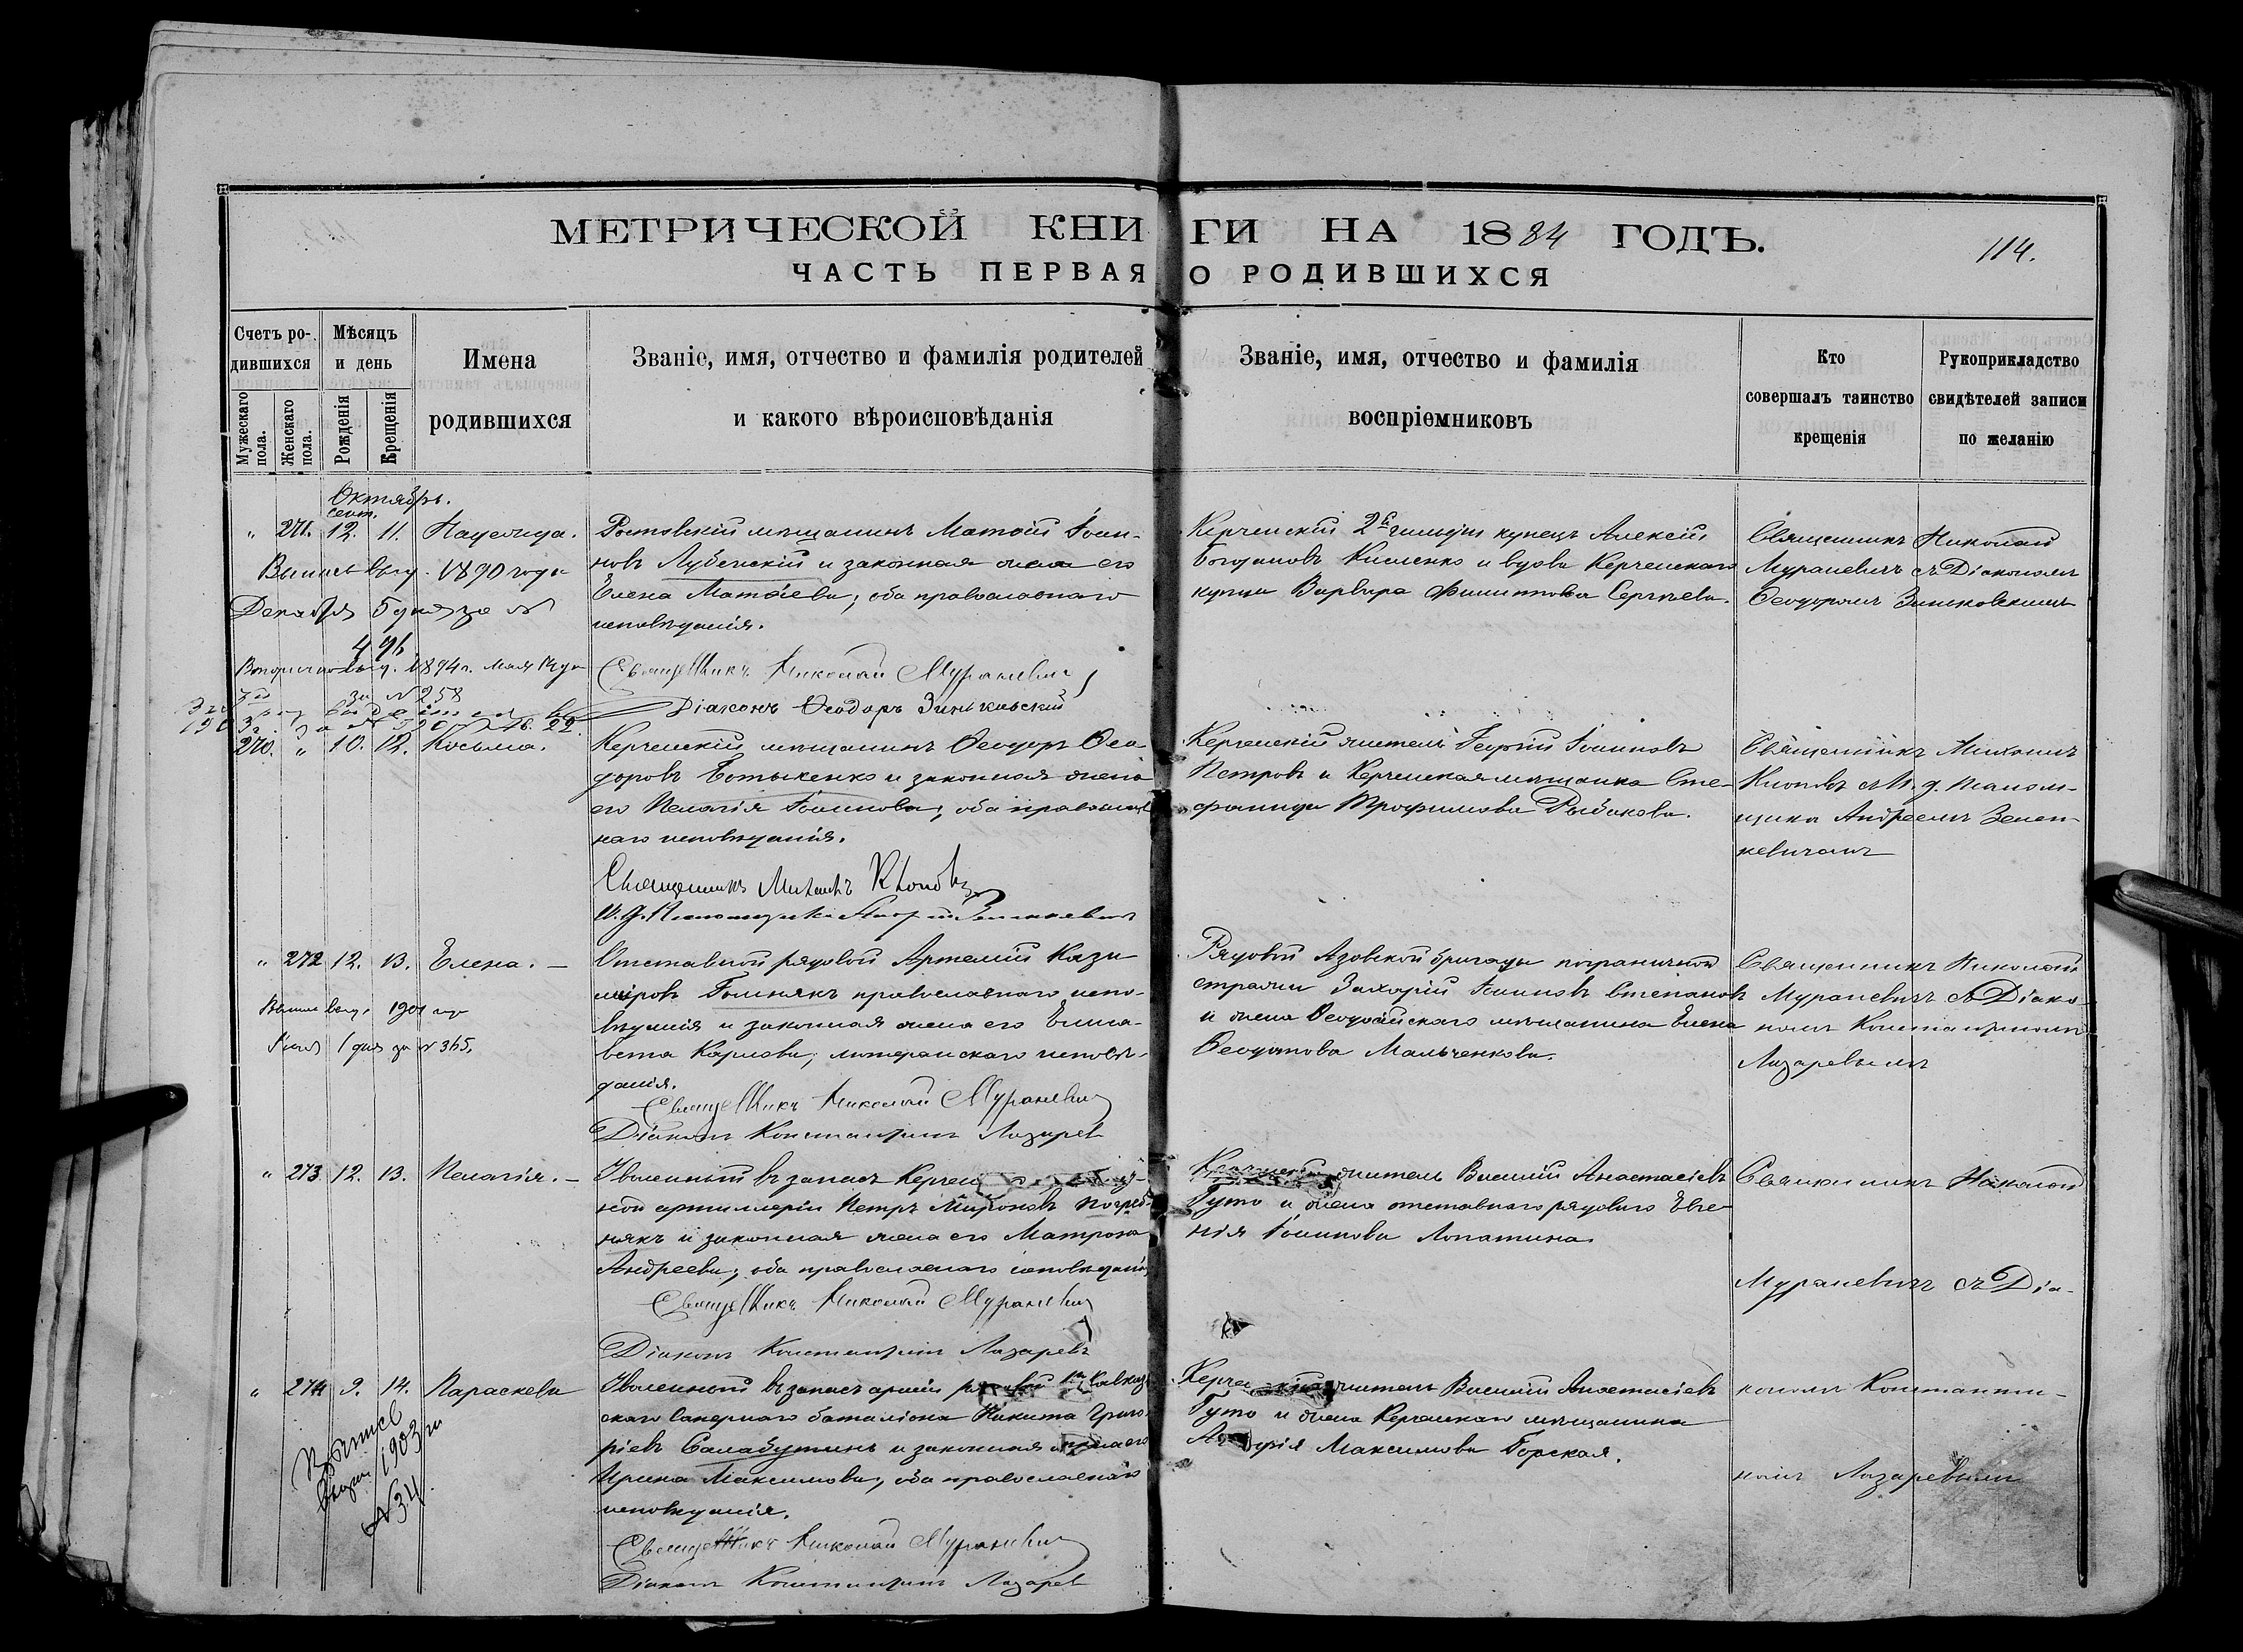 МЕТРИЧЕСКОЙ КНИГИ НА 1884 ГОДЪ.
114.
ЧАСТЬ ПЕРВАЯ О РОДИВШИХСЯ
Счетъ родившихся
Мужескаго пола.
Женскаго пола.
Мѣсяцъ и день
Рожденія
Крещенія
Имена
родившихся
Званіе, имя, отчество и фамилія родителей
и какого вѣроисповѣданія
Званіе, имя, отчество и фамилія
воспріемниковъ
Кто
совершалъ таинство
крещенія
Рукоприкладство
свидѣтелей записи
по желанію
Октябрь.
сент.
" 271. 12. 11.
Ростовскій мѣщанинъ Матѳій Іоан-
новъ Лубенскій и законная жена его
Елена Матѳіева; оба православнаго
исповѣданія.
Священникъ Николай Мураневичъ
Діаконъ Ѳеодоръ Зиньковскій
Керченскій 2й гильдіи купецъ Алексій
Богдановъ Кисиенко и вдова Керченскаго
купца Варвара Филиппова Сергѣева.
Священникъ Николай
Мураневичъ съ Діакономъ
Ѳеодоромъ Зиньковскимъ
Выпись выд. 1890 года
Декабря 5 дня за №
496
Вторично выд. 1894 г. мая
за № 258
270. " 10. 12. Косьма.
Керченскій мѣщанинъ Ѳеодоръ Ѳео-
доровъ и законная жена
его Пелагія Іоаннова; оба православ-
наго исповѣданія.
Священникъ Михаилъ Клоповъ
Керченскій житель Георгій Іоанновъ
Петровъ и Керченская мѣщанка Сте-
фанида Трофимова Рыбакова.
Священникъ Михаилъ
Клоповъ съ И. д. псалом-
щика Андреемъ Зенен-
кевичемъ
" 272 12. 13. Елена. —
Отставной рядовой Артемій Кази-
міровъ православнаго испо-
вѣданія и законная жена его Елиса-
вета Карлова; лютеранскаго исповѣ-
данія.
Священникъ Николай Мураневичъ
Діаконъ Константинъ Лазаревъ
Рядовой Азовской бригады пограничной
стражи Захарій Іоанновъ Степановъ
и жена Ѳеодосійскаго мѣщанина Елена
Ѳеодотова Мальченкова.
Священникъ Николай
Мураневичъ съ Діако-
номъ Константиномъ
Лазаревымъ
1901 года
1 дня за № 365.
" 273 12. 13. Пелагія. —
Уволенный въ запасъ Керчен
ной артиллеріи Петръ Мироновъ Погреб-
някъ и законная жена его Матрона
Андреева; оба православнаго исповѣданія
Священникъ Николай Мураневичъ
Діаконъ Константинъ Лазаревъ
Керченскій житель Василій Анастасіевъ
Гуто и жена отставнаго рядового Евге-
нія Іоаннова Лопатина.
Священникъ Николай
Мураневичъ съ Діа-
" 274 9. 14. Параскева
Уволенный въ запасъ арміи рядовой Кавказ-
скаго Сапернаго баталіона Никита Григо-
ріевъ Салабутинъ и законная жена его
Ирина Максимова; оба православнаго
исповѣданія.
Священникъ Николай Мураневичъ
Діаконъ Константинъ Лазаревъ
Керченскій житель Василій Анастасіевъ
Гуто и жена Керченскаго мѣщанина
Максимова Горская.
кономъ Константи-
номъ Лазаревымъ
Выпись
выдан 1903 го
№ 34